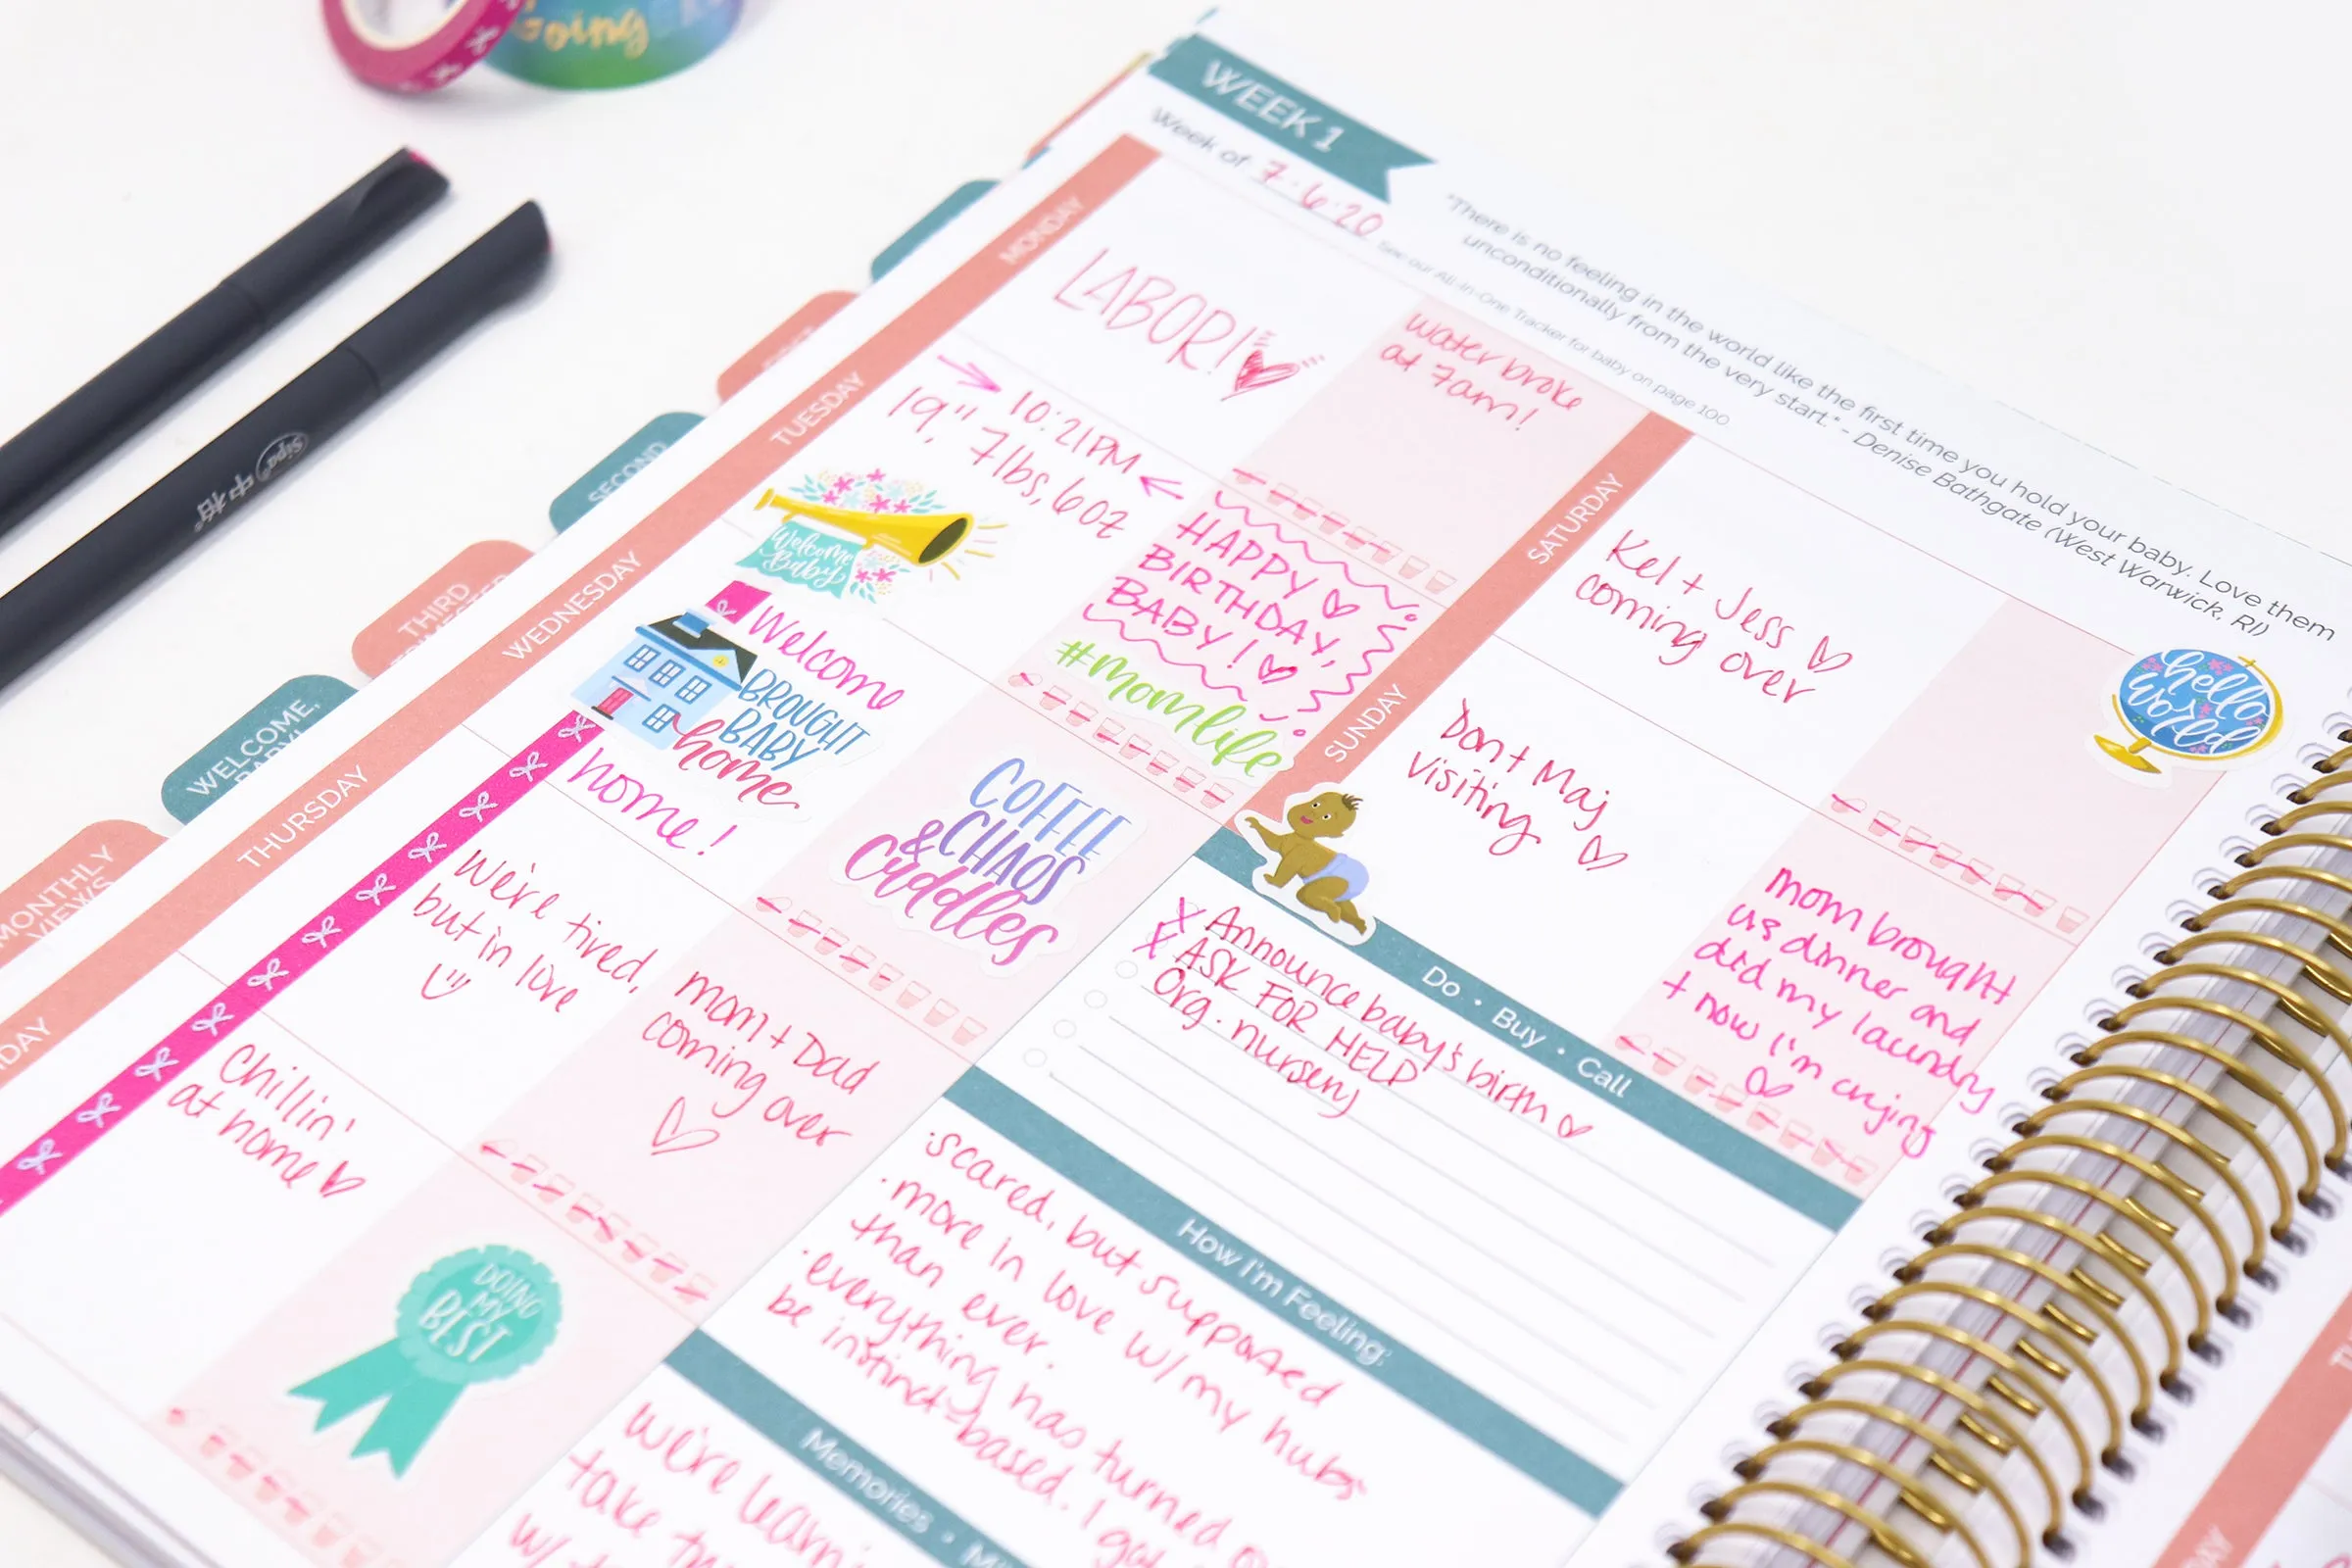 Going
WEEK 1
Week of 7.6.20
See our All-in-One Tracker for baby on page 100
"There is no feeling in the world like the first time you hold your baby. Love them
unconditionally from the very start." - Denise Bathgate (West Warwick, RI)
MONDAY
LABOR!
water broke
at 7am!
TUESDAY
10:21PM
19", 7lbs, 6oz
Welcome
Baby
HAPPY
BIRTHDAY,
BABY!
#momlife
WEDNESDAY
Welcome
BROUGHT
BABY
home
home!
COFFEE
& CHAOS
Cuddles
THURSDAY
We're tired,
but in love
mom + Dad
coming over
DAY
Chillin'
at home
DOING
MY
BEST
SATURDAY
Kel + Jess
coming over
hello
world
SUNDAY
Don + Maj
visiting
mom brought
us dinner and
did my laundry
+ now I'm crying
Do • Buy • Call
X Announce baby's birth
X ASK FOR HELP
Org. nursery
How I'm Feeling:
·scared, but supported
·more in love w/ my hubs
than ever.
·everything has turned
be instinct-based. I
Memories •
we're learni
take
w/
SECOND
THIRD
WELCOME,
BABY!
MONTHLY
VIEWS
Sipa 中柏